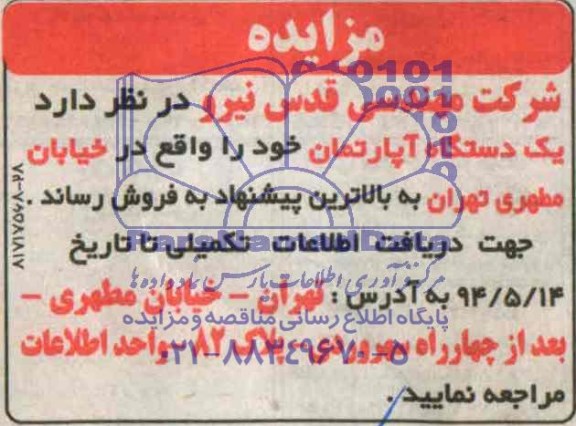 مزایده
شرکت مهندسی قدس نیرو در نظر دارد
یک دستگاه آپارتمان خود را واقع در خیابان
مطهری تهران به بالاترین پیشنهاد به فروش رساند .
جهت دریافت اطلاعات تکمیلی تا تاریخ
۹۴/۵/۱۴ به آدرس : تهران - خیابان مطهری -
بعد از چهارراه سهروردی - پلاک ۸۲ - واحد اطلاعات
مراجعه نمایید .
ParsNamadData
مرکز فرآوری اطلاعات پارس نماد داده ها
پایگاه اطلاع رسانی مناقصه و مزایده
۰۲۱-۸۸۳۴۹۶۷۰-۵